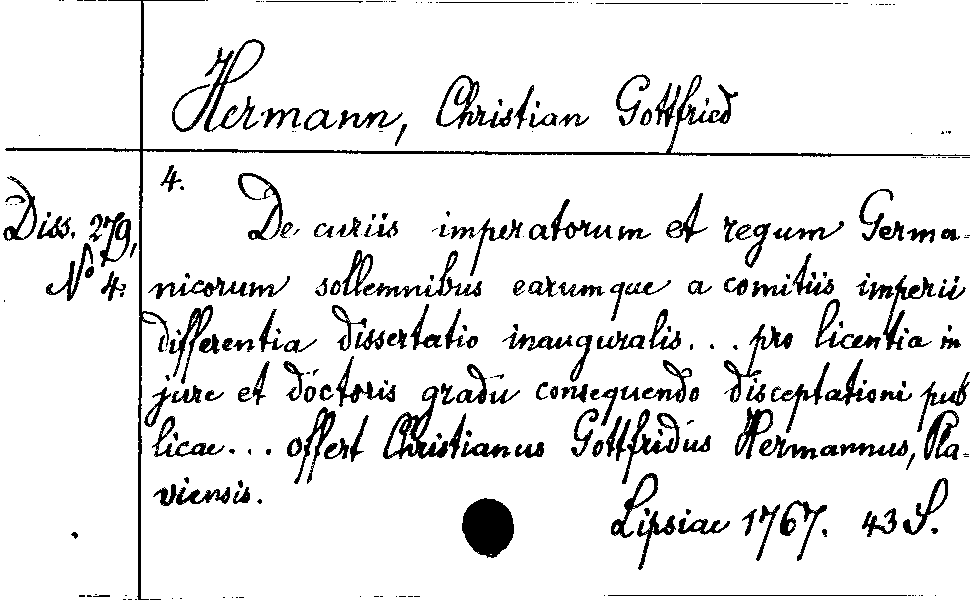 Hermann, Christian Gottfried
4.
Diss. 279,
No 4.
De curiis imperatorum et regum Germa-
nicorum sollemnibus earumque a comitiis imperii
differentia dissertatio inauguralis... pro licentia in
jure et doctoris gradu consequendo disceptationi pub
licae... offert Christianus Gottfridus Hermannus, Pla-
viensis.
Lipsiae 1767. 43 S.